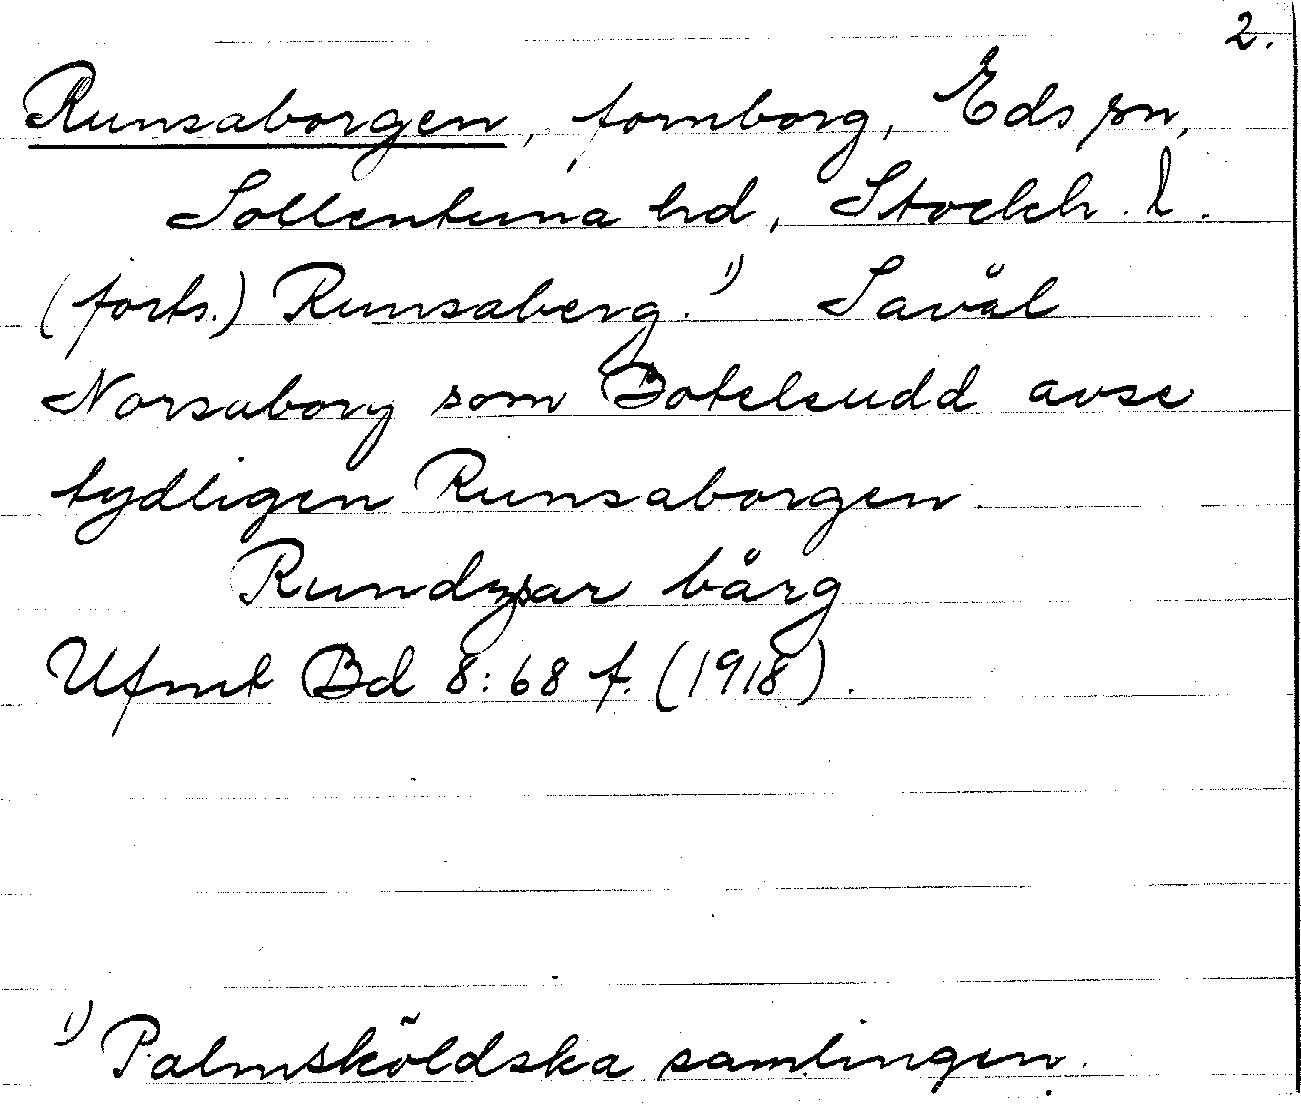 2.
Runsaborgen, fornborg, Eds sn,
Sollentuna hd, Stockh. l.
(forts.) Runsaberg.¹⁾ Såväl
Norsaborg som Botelsudd avse
tydligen Runsaborgen.
Rundzsar bärg
Ufmt Bd 8:68 f. (1918).
¹⁾ Palmsköldska samlingen.